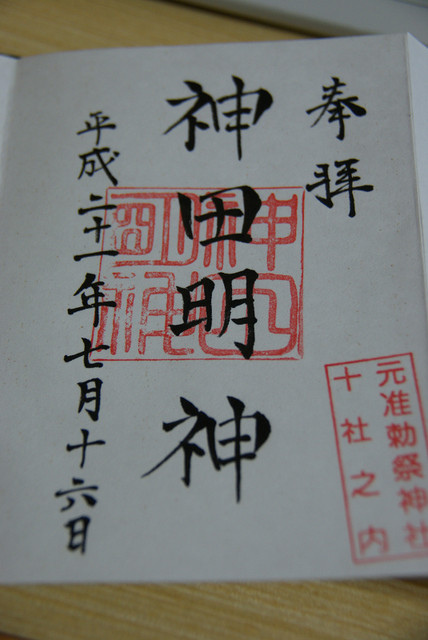 奉拝
元准勅祭神社
十社之内
神田明神
平成二十一年七月十六日